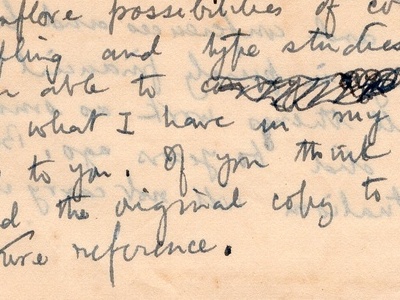 explore possibilities of co
fling and type studies
n able to
what I have in my
to you. If you think
d the original copy to
ture reference.